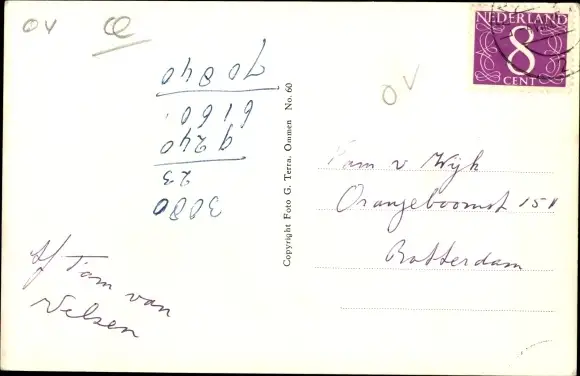 OV
3080
23
9240
6160
70840
van
Velsen
Copyright Foto G. Terra. Ommen No. 60
OV
NEDERLAND
8
CENT
Fam v Wijk
Oranjeboomst 151
Rotterdam